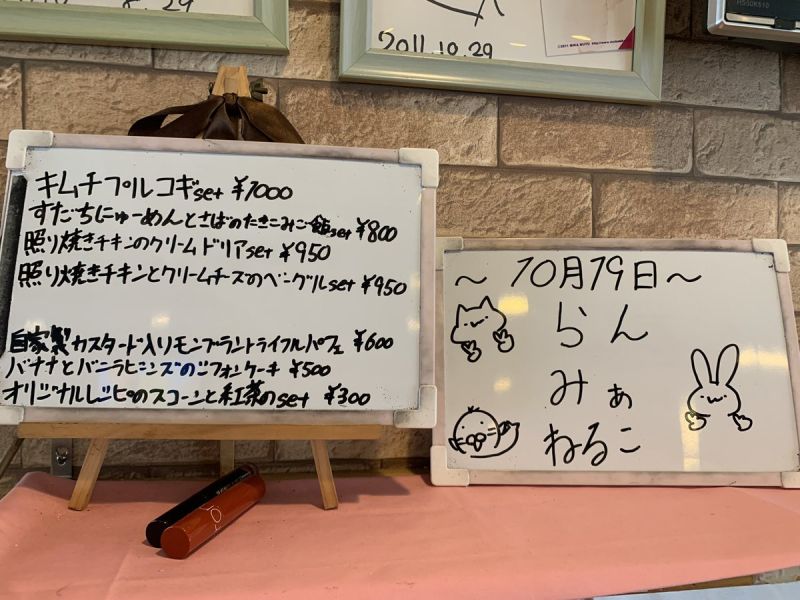 2011.10.29
キムチプルコギset ¥1000
すだちにゅーめんとさばのたきこみご飯set ¥800
照り焼きチキンのクリームドリアset ¥950
照り焼きチキンとクリームチーズのベーグルset ¥950
自家製カスタード入りモンブラントライフルパフェ ¥600
バナナとバニラビーンズのシフォンケーキ ¥500
オリジナルレシピのスコーンと紅茶のset ¥300
～10月19日～
らん
みぁ
ねるこ